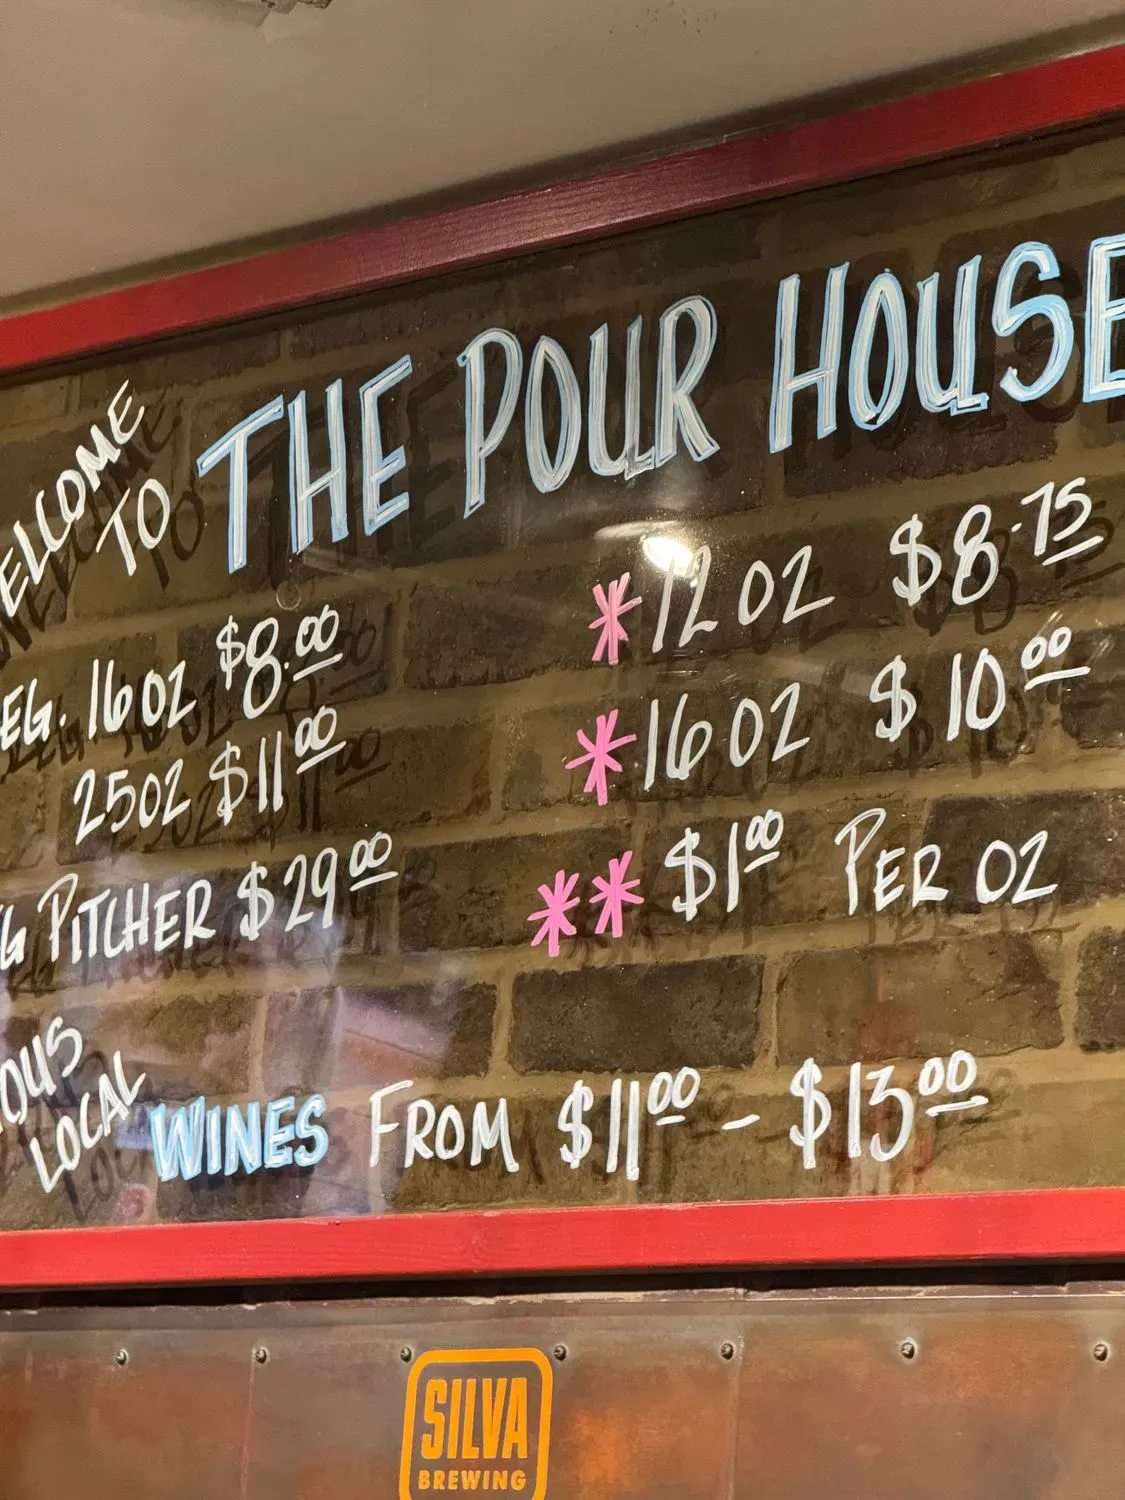 WELCOME
TO
THE POUR HOUSE
EG. 16 OZ $8.00
25OZ $11.00
G PITCHER $29.00
*12 OZ $8.75
*16 OZ $10.00
** $1.00 PER OZ
OUS
LOCAL
WINES FROM $11.00 - $13.00
SILVA
BREWING